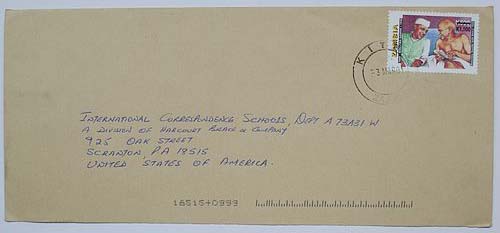 ZAMBIA
K1,000
KIT
INTERNATIONAL CORRESPONDENCE SCHOOLS, DEPT A73A31 W
A DIVISION OF HARCOURT BRACE & COMPANY
925 OAK STREET
SCRANTON, PA 18515
UNITED STATES OF AMERICA.
18515+0999